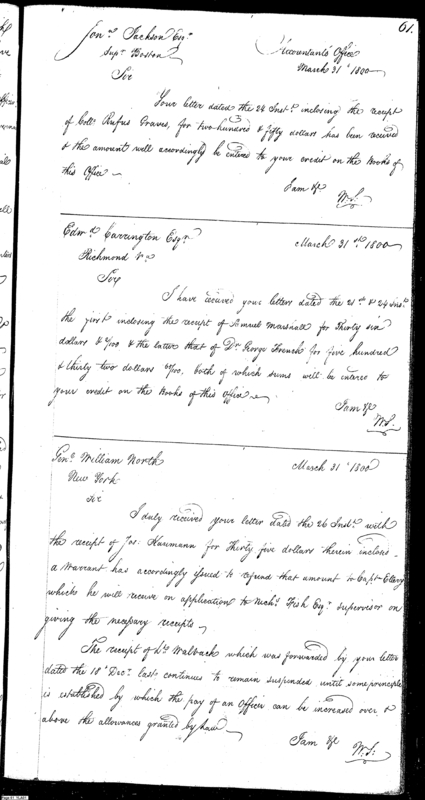 61.
Jonn. Jackson Esqr.
Supt. Boston
Accountants Office
March 31st 1800
Sir
Your letter dated the 24 Inst. inclosing the receipt
of Coll. Rufus Graves, for two hundred & fifty dollars has been received
& the amount will accordingly be entered to your credit on the Books of
this Office
I am &c
W. S.
Edwd. Carrington Esqr.
March 31st. 1800
Richmond Va.
Sir
I have received your letters dated the 21st & 24 Inst.
the first inclosing the receipt of Samuel Marshall for Thirty six
dollars & /100 & the latter that of Dr. George French for five hundred
& thirty two dollars /100. both of which sums will be entered to
your credit on the Books of this Office
I am &c
W. S.
Genl. William North
March 31st 1800
New York
Sir
I duly received your letter dated the 26 Inst. with
the receipt of Jos. for Thirty five dollars therein inclosed
a Warrant has accordingly issued to refund that amount to Capt. Ellery
which he will receive on application to Nichs. Fish Esqr. supervisor on
giving the necessary receipts
The receipt of Lt. Walback which was forwarded by your letter
dated the 18th Decr. last continues to remain suspended until some principle
is established by which the pay of an Officer can be increased over &
above the allowances granted by Law
I am &c
W. S.